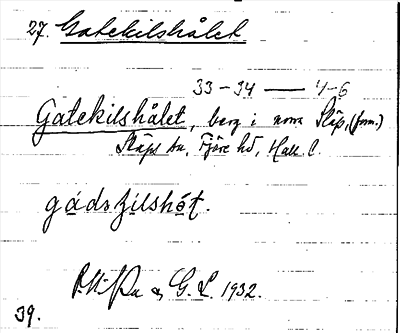 27. Gatekilshålet
33-34 — 4-6
Gatekilshålet, berg i norra Släp, (forn.)
Släps sn, Fjäre hd, Hall. l.
gádsʒilshót.
& G. L. 1932.
39.